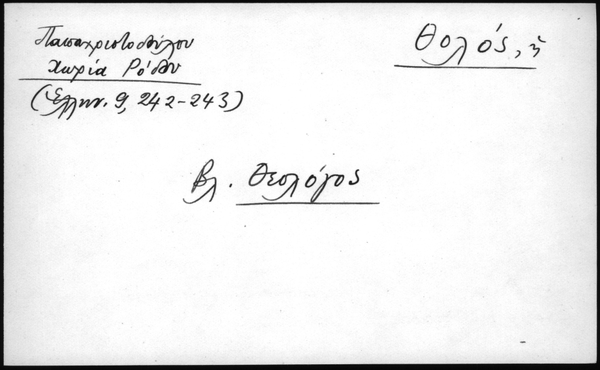 Παπαχριστοδούλου
Χωριά Ρόδου
(Ἑλλην. 9, 242-243)
Θολός, ἡ
βλ. Θεολόγος